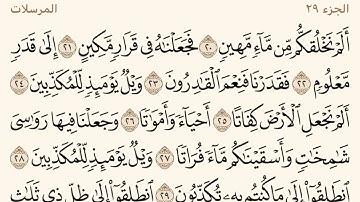 الجزء ٢٩
المرسلات
أَلَمْ نَخْلُقكُّم مِّن مَّآءٍ مَّهِينٍ ٢٠ فَجَعَلْنَٰهُ فِى قَرَارٍ مَّكِينٍ ٢١ إِلَىٰ قَدَرٍ
مَّعْلُومٍ ٢٢ فَقَدَرْنَا فَنِعْمَ ٱلْقَٰدِرُونَ ٢٣ وَيْلٌ يَوْمَئِذٍ لِّلْمُكَذِّبِينَ ٢٤
أَلَمْ نَجْعَلِ ٱلْأَرْضَ كِفَاتًا ٢٥ أَحْيَآءً وَأَمْوَٰتًا ٢٦ وَجَعَلْنَا فِيهَا رَوَٰسِىَ
شَٰمِخَٰتٍ وَأَسْقَيْنَٰكُم مَّآءً فُرَاتًا ٢٧ وَيْلٌ يَوْمَئِذٍ لِّلْمُكَذِّبِينَ ٢٨
ٱنطَلِقُوٓا۟ إِلَىٰ مَا كُنتُم بِهِۦ تُكَذِّبُونَ ٢٩ ٱنطَلِقُوٓا۟ إِلَىٰ ظِلٍّ ذِى ثَلَٰثِ